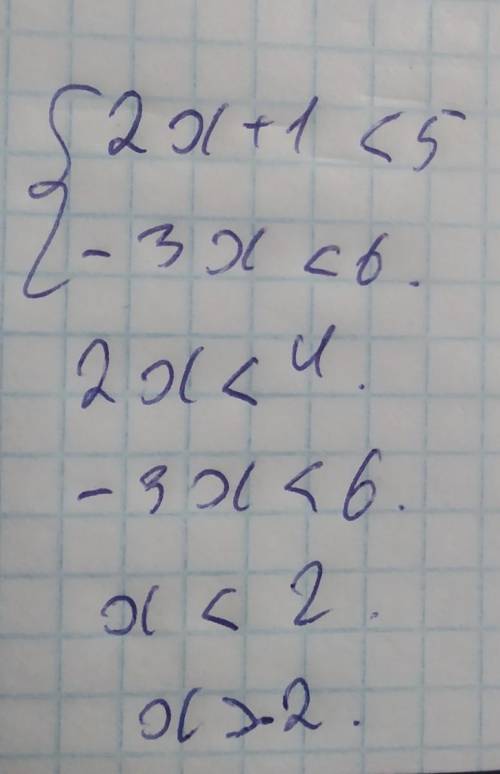 {2x+1<5
-3x<6.
2x<4.
-3x<6.
x<2.
x>-2.